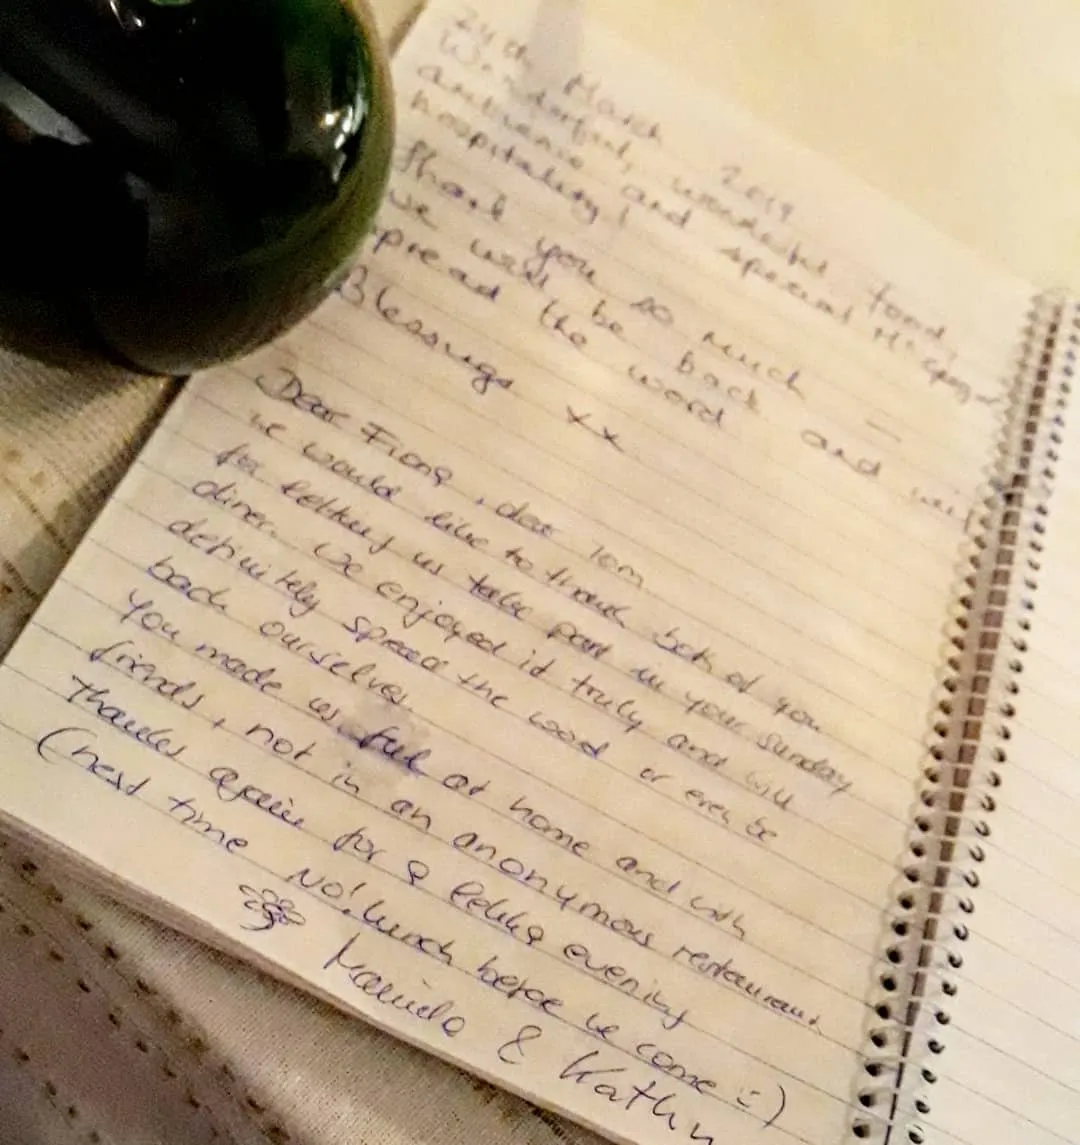 24th March 2019
Wonderful, wonderful food,
ambience and special
hospitality!
Thank you so much –
we will be back and will
spread the word
Blessings xx
Dear Fiona, dear Tom
we would like to thank both of you
for letting us take part in your sunday
diner. We enjoyed it truly and will
definitely spread the word or even be
back ourselves.
You made us feel at home and with
friends, not in an anonymous restaurant.
Thanks again for a lekka evening
(next time NO! lunch before we come :-)
& Kathr